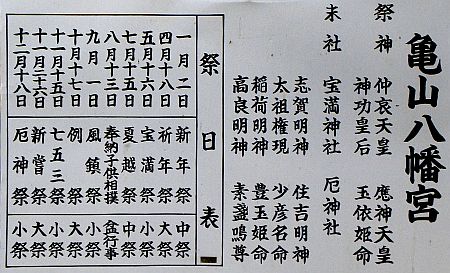 亀山八幡宮
祭神 仲哀天皇 應神天皇
神功皇后 玉依姫命
末社 宝満神社 厄神社
志賀明神 住吉明神
太祖権現 少彦名命
稲荷明神 豊玉姫命
高良明神 素盞嗚尊
祭日表
一月二日 新年祭 中祭
四月十八日 祈年祭 大祭
五月十六日 宝満祭 小祭
七月十五日 夏越祭 中祭
八月十三日 奉納子供相撲 盆行事
九月一日 風鎮祭 小祭
十月十七日 例祭 大祭
十一月十五日 七五三祭 小祭
十一月二十六日 新嘗祭 大祭
十二月十八日 厄神祭 小祭